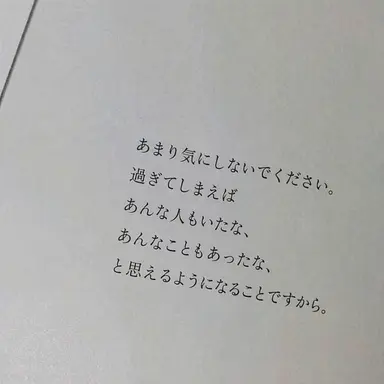 あまり気にしないでください。
過ぎてしまえば
あんな人もいたな、
あんなこともあったな、
と思えるようになることですから。